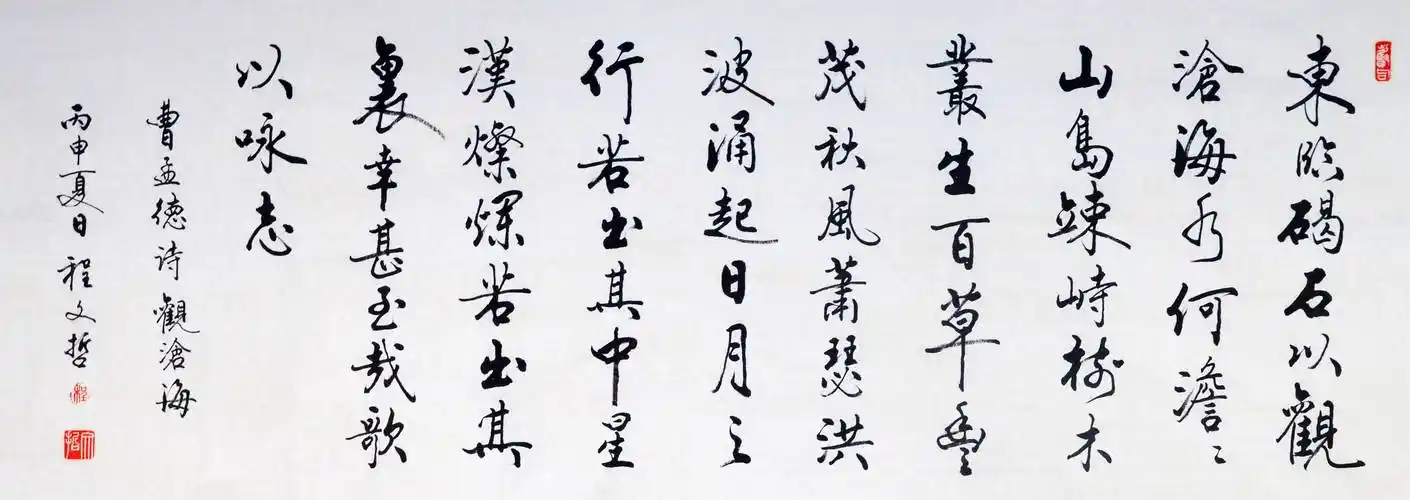 東臨碣石以觀
滄海水何澹〻
山島竦峙樹木
叢生百草豐
茂秋風蕭瑟洪
波涌起日月之
行若出其中星
漢燦爛若出其
裏幸甚至哉歌
以咏志
曹孟德诗觀滄海
丙申夏日程文哲
程
文哲